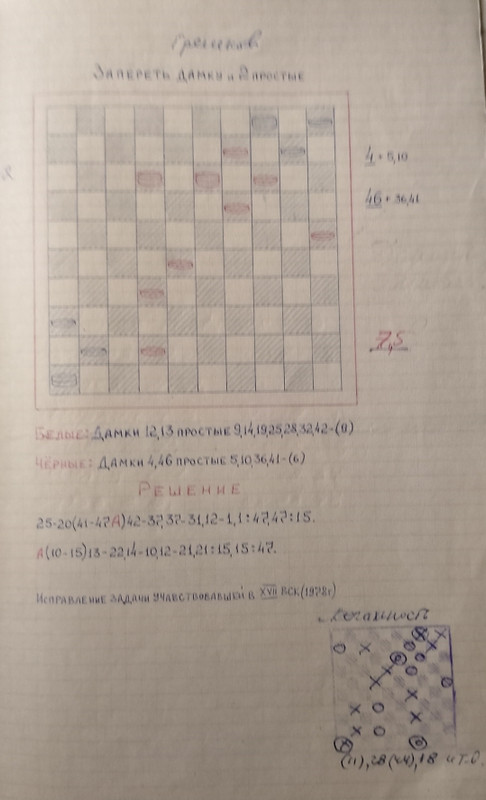 Грешнов
Запереть дамку и 2 простые
4 + 5,10
46 + 36,41
7,5
Белые: Дамки 12,13 простые 9,14,19,25,28,32,42-(9)
Чёрные: Дамки 4,46 простые 5,10,36,41-(6)
Решение
25-20(41-47А)42-37,37-31,12-1,1:47,47:15.
А(10-15)13-22,14-10,12-21,21:15,15:47.
Исправление задачи учавствовавшей в XVII ВСК (1978г)
Легальность
(11), 28 (44), 18 и т.д.